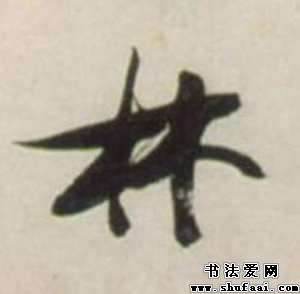 林
书法爱网
www.shufaai.com